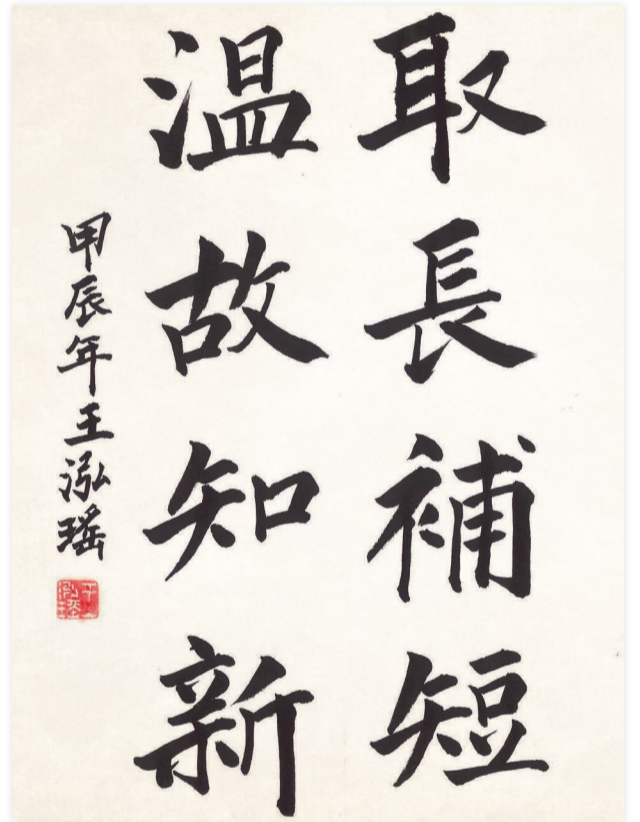 取長補短
温故知新
甲辰年王泓瑤